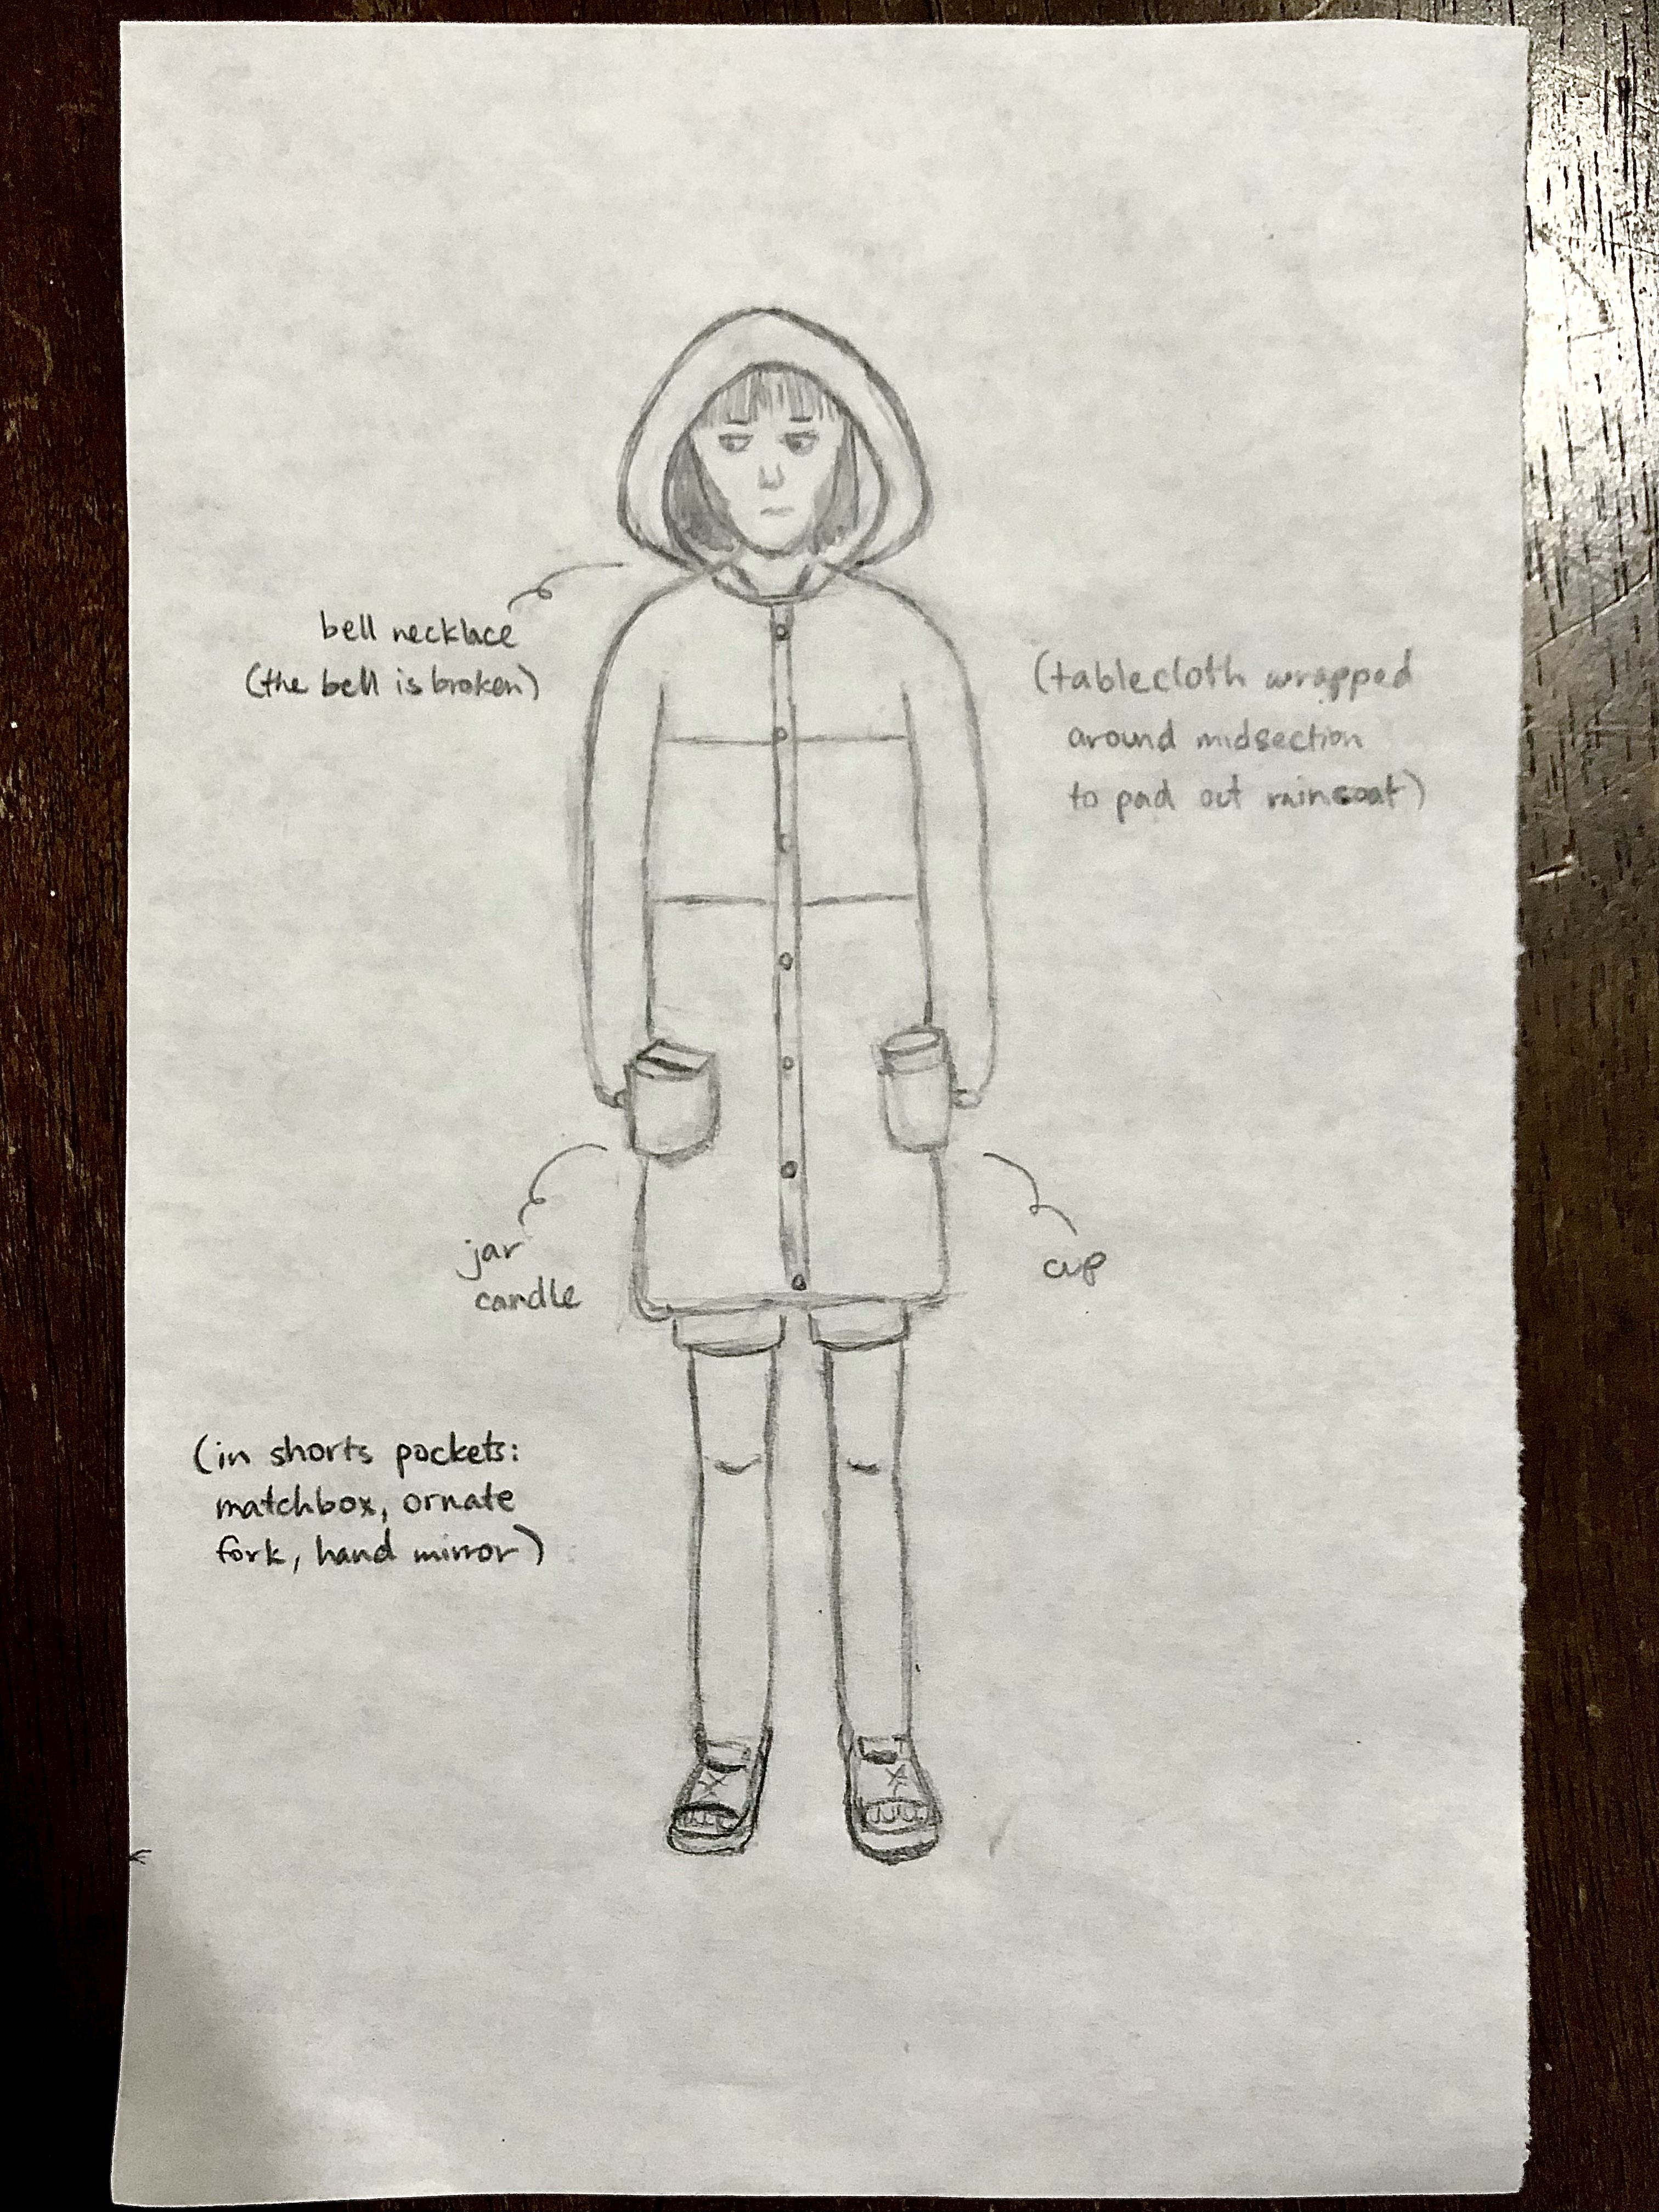 bell necklace
(the bell is broken)
(tablecloth wrapped
around midsection
to pad out raincoat)
jar
candle
cup
(in shorts pockets:
matchbox, ornate
fork, hand mirror)